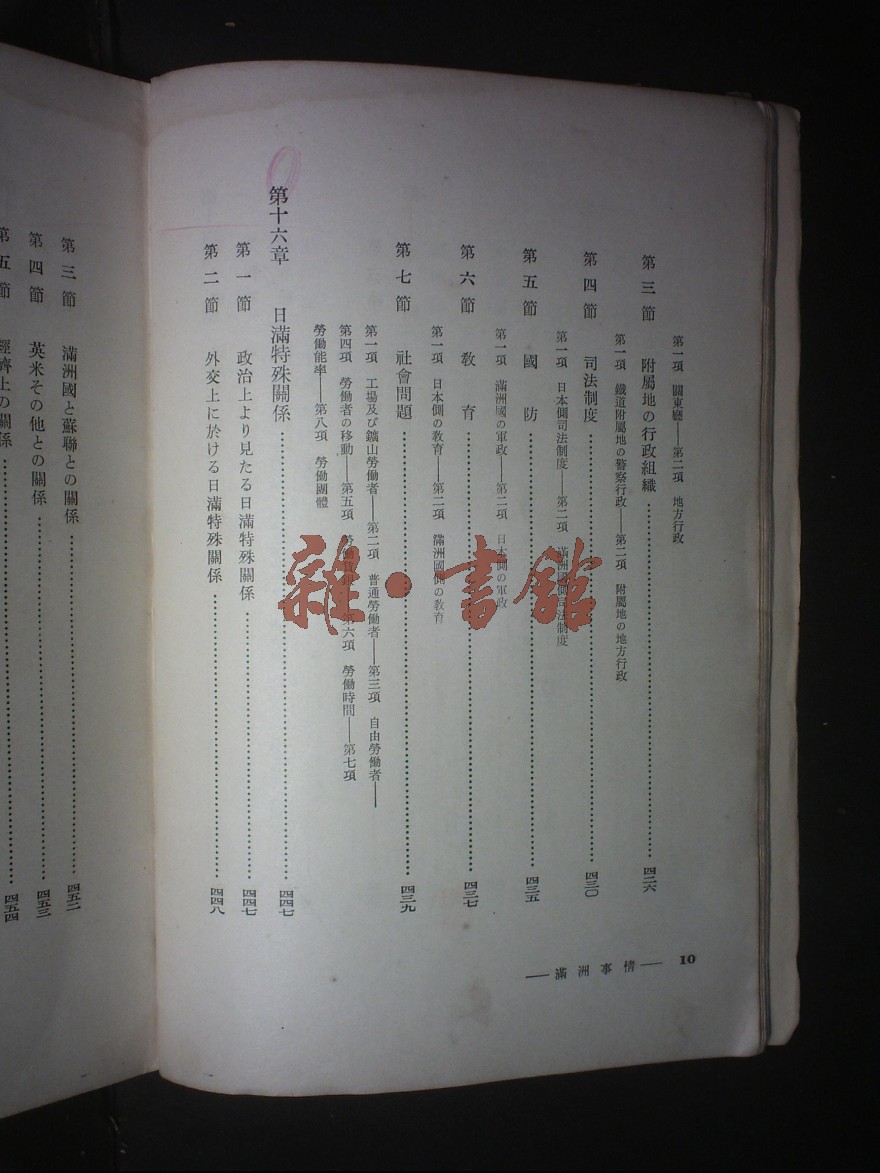 第一項　關東廳――第二項　地方行政
第三節　附屬地の行政組織……四二六
第一項　鐵道附屬地の警察行政――第二項　附屬地の地方行政
第四節　司法制度……四三〇
第一項　日本側司法制度――第二項　滿洲國側司法制度
第五節　國防……四三五
第一項　滿洲國の軍政――第二項　日本側の軍政
第六節　教育……四三七
第一項　日本側の教育――第二項　滿洲國側の教育
第七節　社會問題……四三九
第一項　工場及び鑛山勞働者――第二項　普通勞働者――第三項　自由勞働者――
第四項　勞働者の移動――第五項　勞働　第六項　勞働時間――第七項
勞働能率――第八項　勞働團體
第十六章　日滿特殊關係……四四七
第一節　政治上より見たる日滿特殊關係……四四七
第二節　外交上に於ける日滿特殊關係……四四八
――滿洲事情――　10
第三節　滿洲國と蘇聯との關係……四五二
第四節　英米その他との關係……四五三
第五節　經濟上の關係……四五四
雜・書館